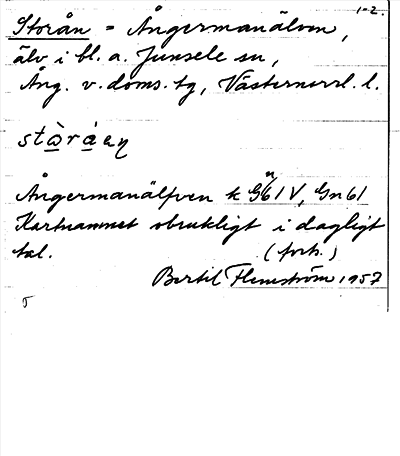 1-2.
Storån = Ångermanälven,
älv i bl. a. Junsele sn,
Ång. v. doms. tg, Västernorrl. l.
stò̱rá̱en
Ångermanälfven k G61V, Gn61
Kartnamnet obrukligt i dagligt
tal. (forts.)
Bertil Flemström 1957